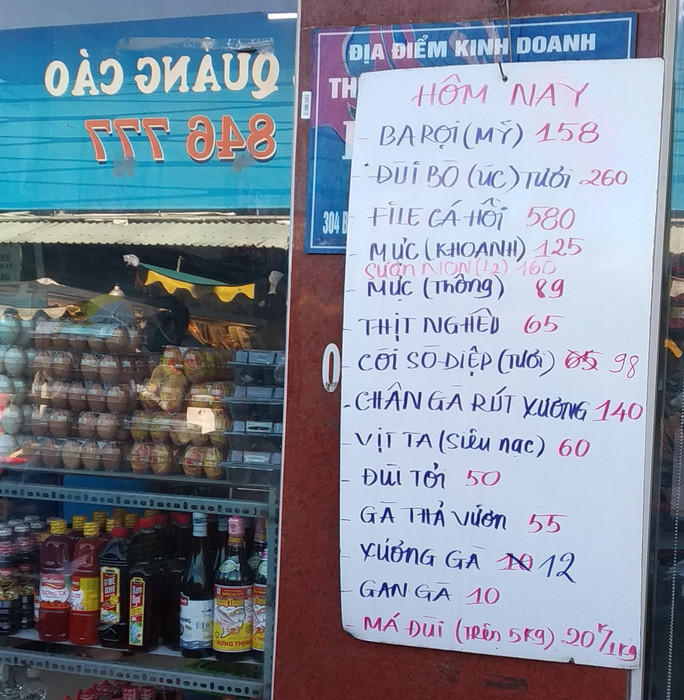 QUẢNG CÁO
846 777
ĐỊA ĐIỂM KINH DOANH
TH
304
HÔM NAY
- BA RỌI (MỸ) 158
- ĐÙI BÒ (ÚC) TƯƠI 260
- FILE CÁ HỒI 580
- MỰC (KHOANH) 125
SƯỜN NON (L2) 160
MỰC (Thông) 89
- THỊT NGHÊU 65
- CỒI SÒ ĐIỆP (TƯƠI) 65 98
- CHÂN GÀ RÚT XƯƠNG 140
- VỊT TA (Siêu nạc) 60
- ĐÙI TỎI 50
- GÀ THẢ VƯỜN 55
- XƯƠNG GÀ 10 12
- GAN GÀ 10
- MÁ ĐÙI (Trên 5Kg) 20K/1kg